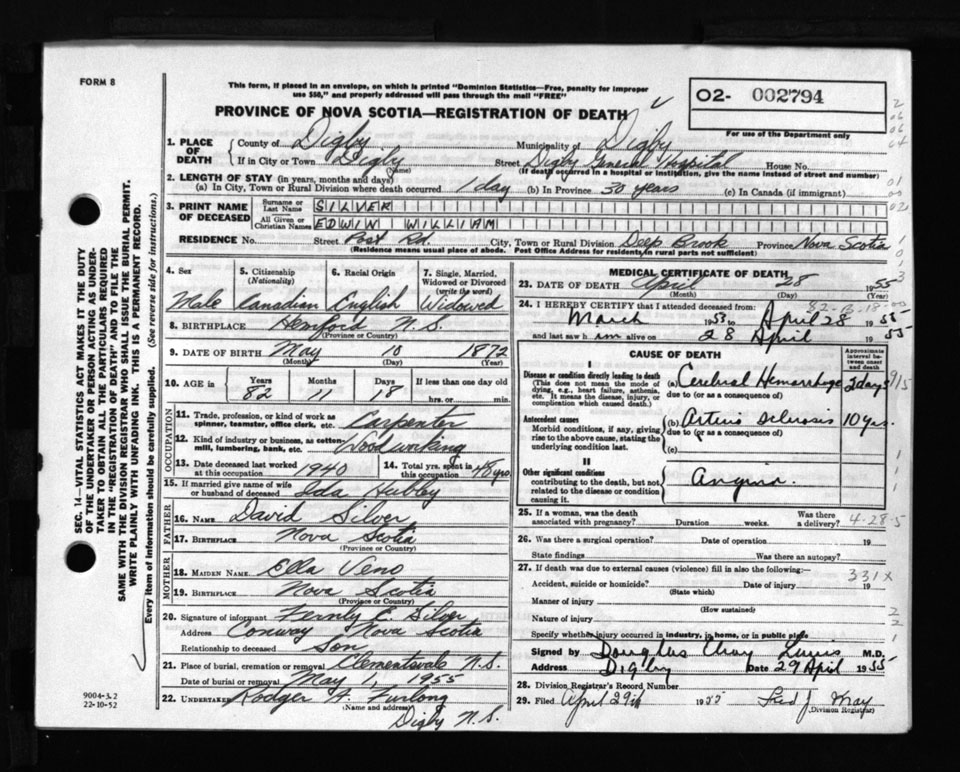 FORM 8
This form, if placed in an envelope, on which is printed "Dominion Statistics—Free, penalty for improper
use $50," and properly addressed will pass through the mail "FREE"
PROVINCE OF NOVA SCOTIA—REGISTRATION OF DEATH
02- 002794
For use of the Department only
1. PLACE OF DEATH
County of Digby Municipality of Digby
If in City or Town Digby (Name) Street Digby General Hospital House No.
(If death occurred in a hospital or institution, give the name instead of street and number)
2. LENGTH OF STAY (in years, months and days)
(a) In City, Town or Rural Division where death occurred 1 day (b) In Province 30 years (c) In Canada (if immigrant)
3. PRINT NAME OF DECEASED
Surname or Last Name SILVER
All Given or Christian Names EDWIN WILLIAM
RESIDENCE No. Street Post Rd. City, Town or Rural Division Deep Brook Province Nova Scotia
(Residence means usual place of abode. Post Office Address for residents in rural parts not sufficient)
4. Sex Male
5. Citizenship (Nationality) Canadian
6. Racial Origin English
7. Single, Married, Widowed or Divorced (write the word) Widowed
8. BIRTHPLACE Hemford N.S.
(Province or Country)
9. DATE OF BIRTH May 10 1872
(Month) (Day) (Year)
10. AGE in Years 82 Months 11 Days 18 If less than one day old hrs. or min.
OCCUPATION
11. Trade, profession, or kind of work as spinner, teamster, office clerk, etc. Carpenter
12. Kind of industry or business, as cotton-mill, lumbering, bank, etc. Wood working
13. Date deceased last worked at this occupation 1940
14. Total yrs. spent in this occupation 48 yrs.
15. If married give name of wife or husband of deceased Ida Hubley
FATHER
16. NAME David Silver
17. BIRTHPLACE Nova Scotia
(Province or Country)
MOTHER
18. MAIDEN NAME Ella Veno
19. BIRTHPLACE Nova Scotia
(Province or Country)
20. Signature of informant Fernly E. Silver
Address Conway Nova Scotia
Relationship to deceased Son
21. Place of burial, cremation or removal Clementsvale N.S.
Date of burial or removal May 1, 1955
22. UNDERTAKER Rodger A. Furlong
(Name and address)
Digby N.S.
MEDICAL CERTIFICATE OF DEATH
23. DATE OF DEATH April 28 1955
(Month) (Day)
24. I HEREBY CERTIFY that I attended deceased from:
March 1953 to April 28 1955
and last saw him alive on 28 April 1955
CAUSE OF DEATH
Approximate interval between onset and death
I
Disease or condition directly leading to death
(This does not mean the mode of dying, e.g., heart failure, asthenia, etc. It means the disease, injury, or complication which caused death.)
(a) Cerebral Hemorrhage 2 days
due to (or as a consequence of)
Antecedent causes
Morbid conditions, if any, giving rise to the above cause, stating the underlying condition last.
(b) Arterio sclerosis 10 yrs.
due to (or as a consequence of)
(c)
II
Other significant conditions
contributing to the death, but not related to the disease or condition causing it.
Angina.
25. If a woman, was the death associated with pregnancy? Duration weeks. Was there a delivery? 4-28-5
26. Was there a surgical operation? Date of operation 19
State findings Was there an autopsy?
27. If death was due to external causes (violence) fill in also the following:— 331X
Accident, suicide or homicide? Date of injury 19
(State which)
Manner of injury
(How sustained)
Nature of injury
Specify whether injury occurred in industry, in home, or in public place
Signed by Douglas M.D.
Address Digby Date 29 April 1955
28. Division Registrar's Record Number
29. Filed April 29th 1955 Fred J. May
(Division Registrar)
SEC. 14—VITAL STATISTICS ACT MAKES IT THE DUTY
OF THE UNDERTAKER OR PERSON ACTING AS UNDER-
TAKER TO OBTAIN ALL THE PARTICULARS REQUIRED
IN THE "REGISTRATION OF DEATH" AND TO FILE THE
SAME WITH THE DIVISION REGISTRAR WHO SHALL ISSUE THE BURIAL PERMIT.
WRITE PLAINLY WITH UNFADING INK. THIS IS A PERMANENT RECORD.
Every item of information should be carefully supplied. (See reverse side for instructions.)
9004-3.2
22-10-52